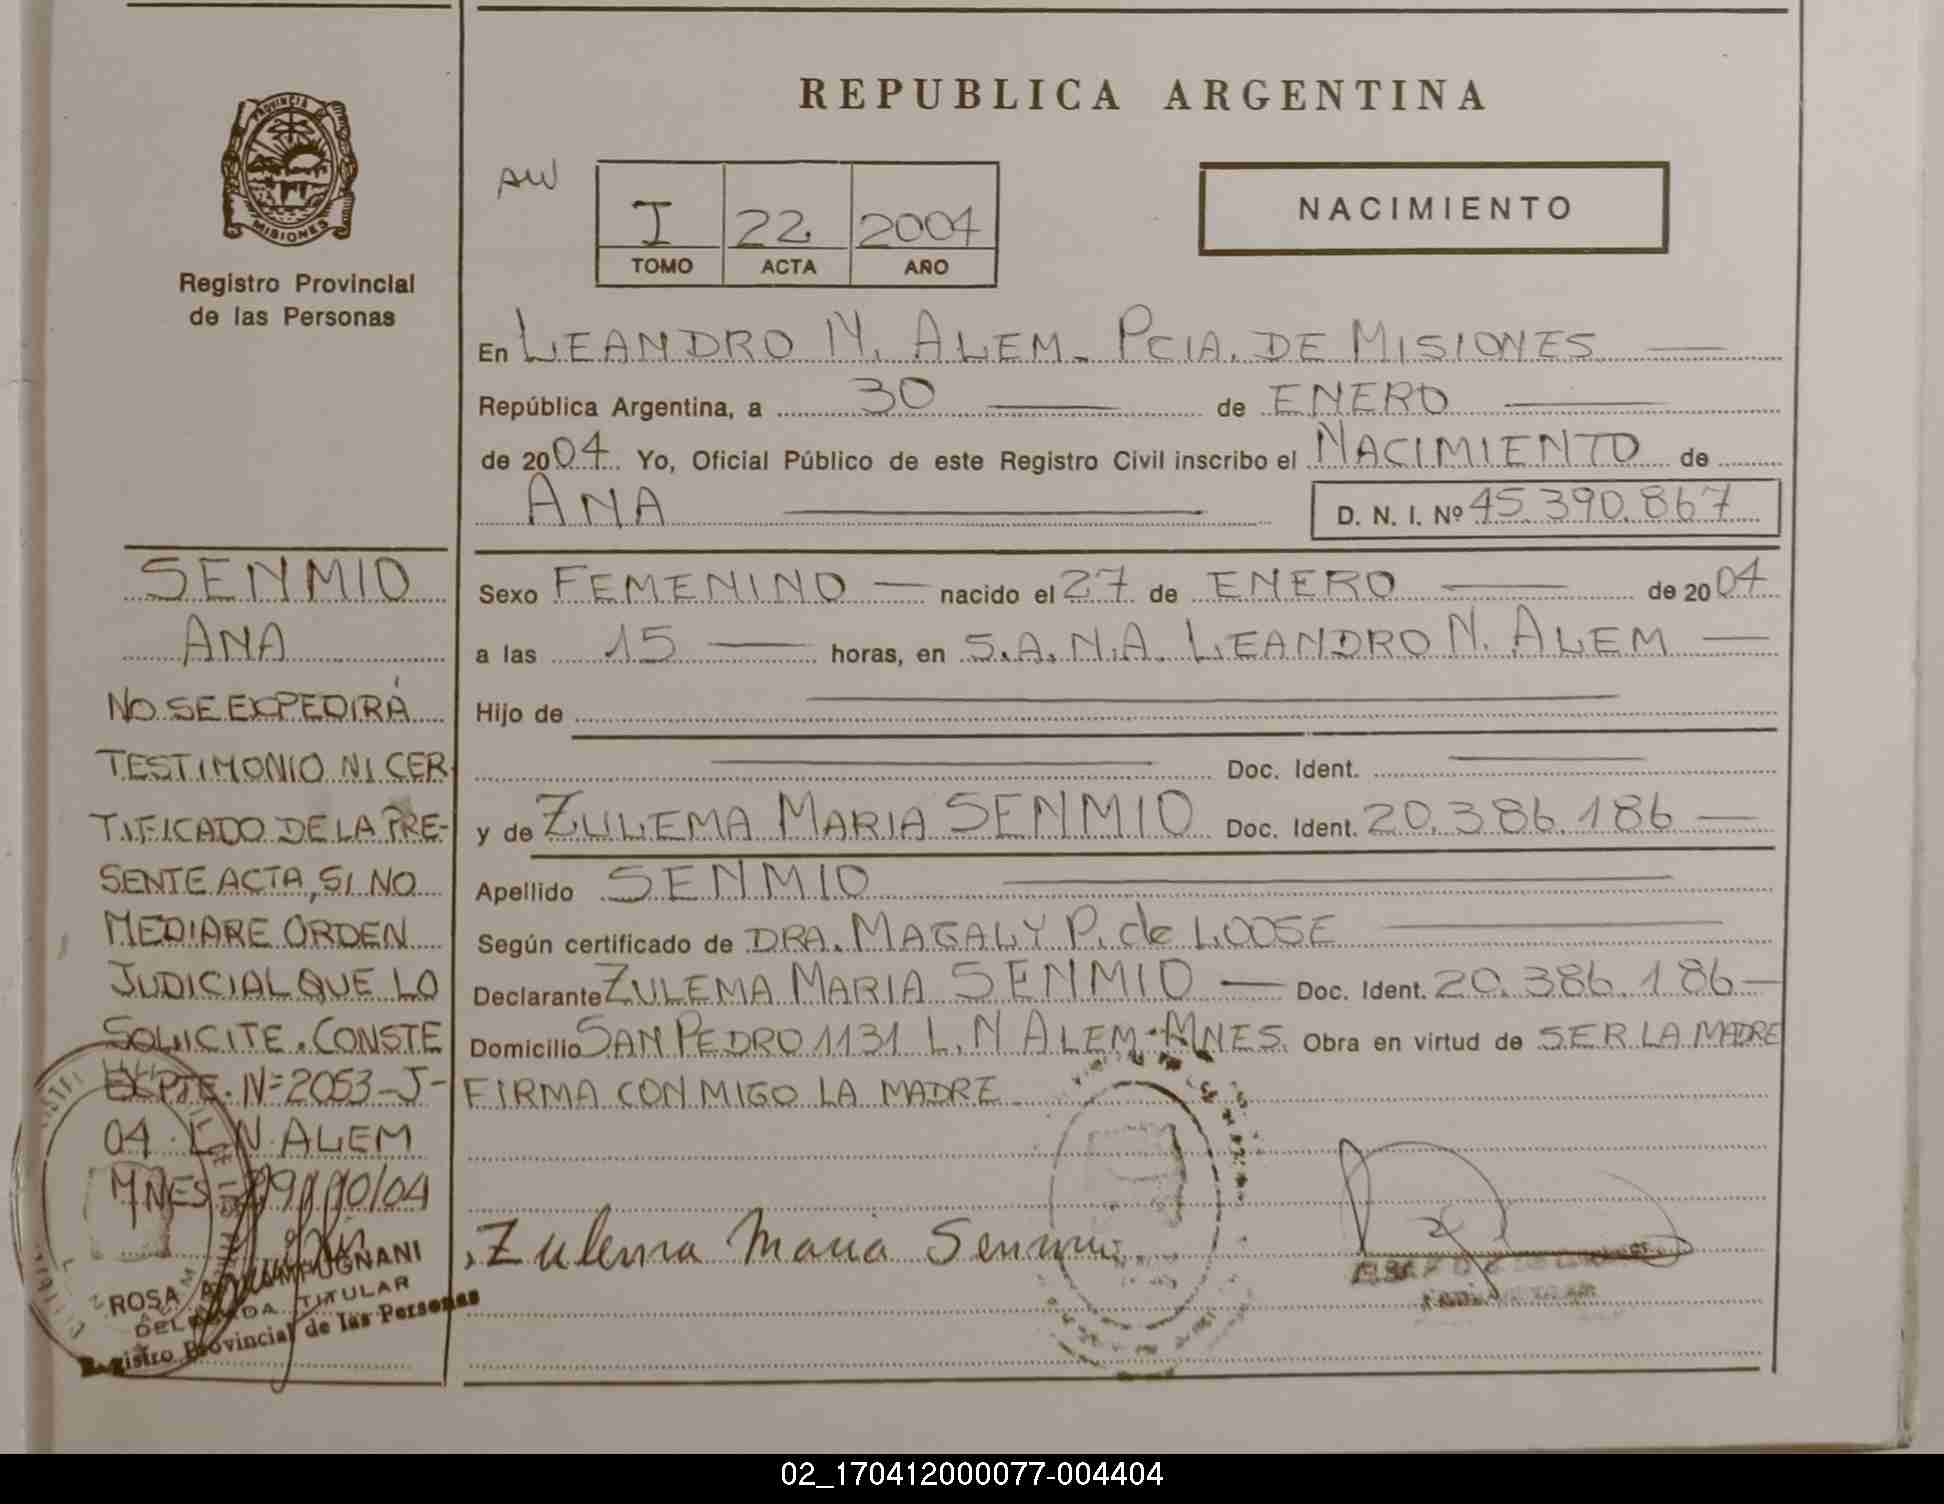 REPUBLICA ARGENTINA
PROVINCIA DE
MISIONES
Registro Provincial
de las Personas
AW
I 22 2004
TOMO ACTA AÑO
NACIMIENTO
En LEANDRO N. ALEM - PCIA. DE MISIONES
República Argentina, a 30 de ENERO
de 2004 Yo, Oficial Público de este Registro Civil inscribo el NACIMIENTO de
ANA D. N. I. Nº 45.390.867
Sexo FEMENINO nacido el 27 de ENERO de 2004
a las 15 horas, en S.A.N.A. LEANDRO N. ALEM
Hijo de
Doc. Ident.
y de ZULEMA MARIA SENMIO Doc. Ident. 20.386.186
Apellido SENMIO
Según certificado de DRA. MAGALY P. de LOOSE
Declarante ZULEMA MARIA SENMIO Doc. Ident. 20.386.186
Domicilio SAN PEDRO 1131 L. N ALEM - MNES. Obra en virtud de SER LA MADRE
FIRMA CON MIGO LA MADRE
Zulema Maria
SENMIO
ANA
NO SE EXPEDIRÁ
TESTIMONIO NI CER
TIFICADO DE LA PRE-
SENTE ACTA, SI NO
MEDIARE ORDEN
JUDICIAL QUE LO
SOLICITE. CONSTE
EXPTE. Nº 2053-J-
04. L. N. ALEM
MNES
ROSA
DELEGADA TITULAR
Registro Provincial de las Personas
02_170412000077-004404